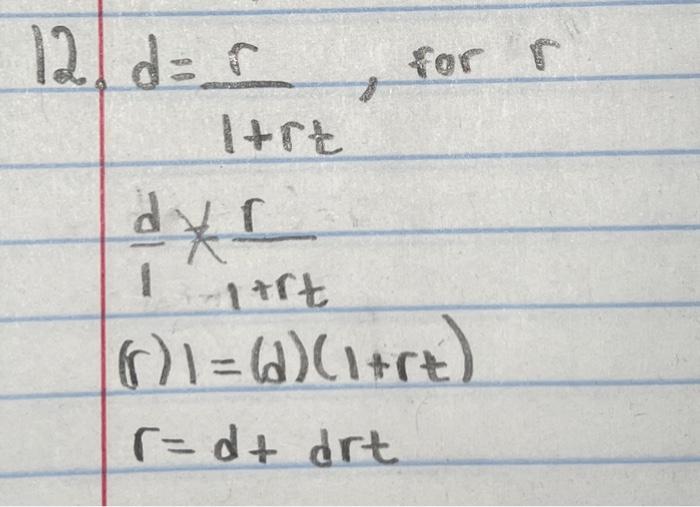 12. d = r / 1+rt , for r
d/1 = r / 1+rt
(r)1 = (d)(1+rt)
r = d + drt